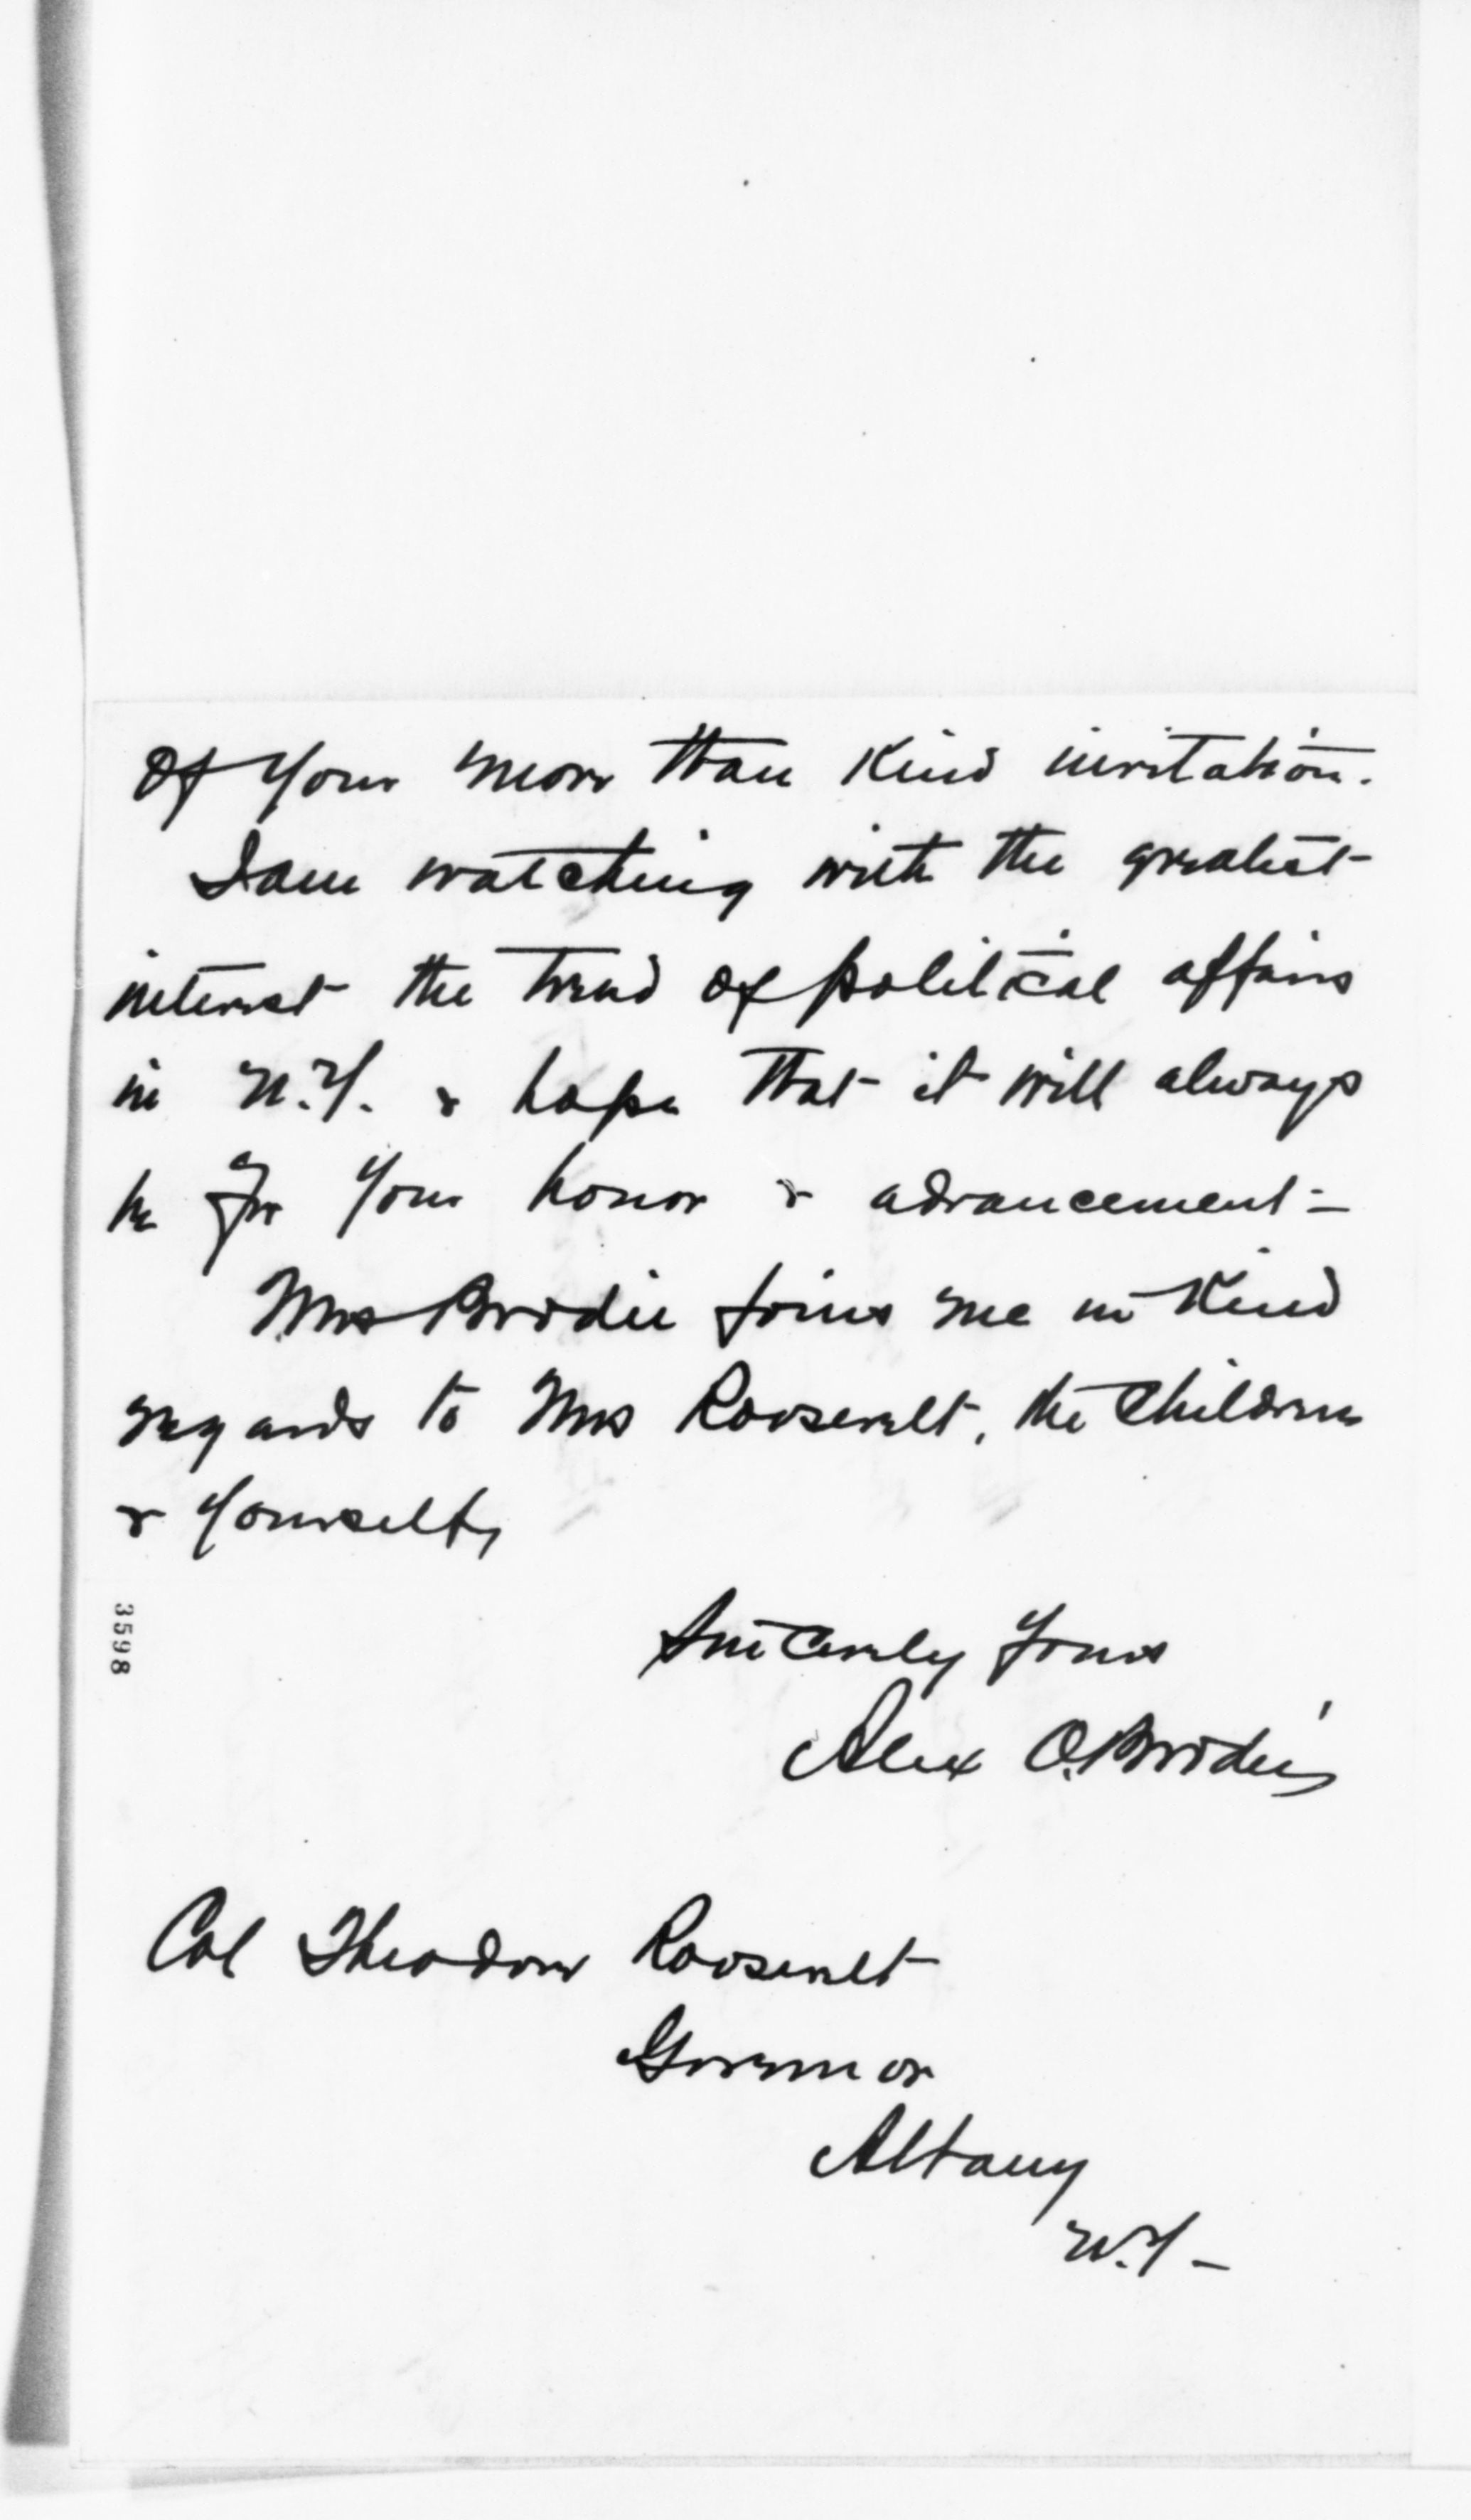 of your more than kind invitation.
I am watching with the greatest
interest the trend of political affairs
in N.Y. & hope that it will always
be for your honor & advancement –
Mrs Brodie joins me in kind
regards to Mrs Roosevelt, the children
& yourself,
Sincerely yours
Alex O. Brodie
3598
Col Theodore Roosevelt
Governor
Albany
N.Y –